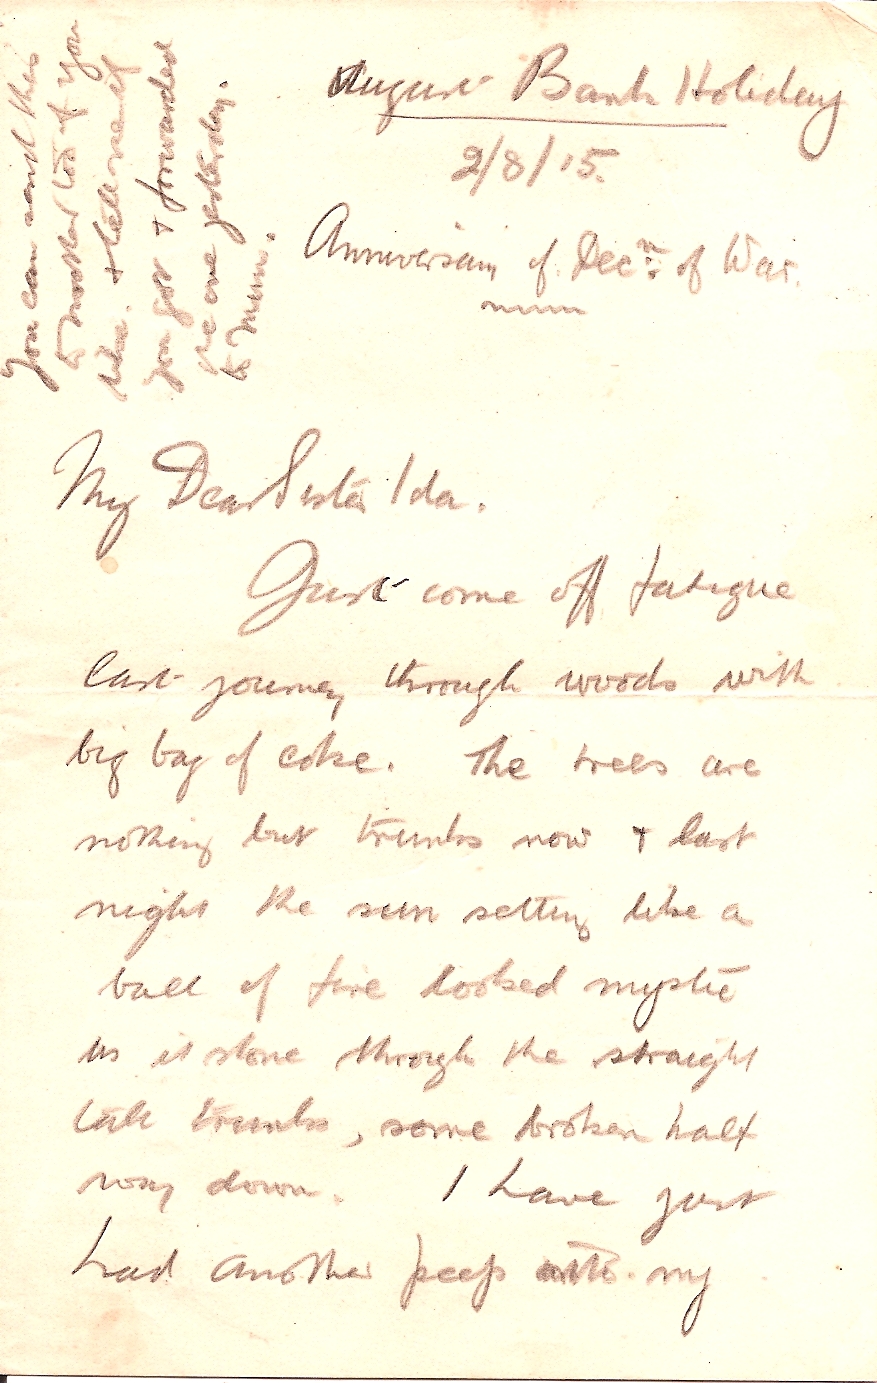 August Bank Holiday
2/8/15.
Anniversary of Decn. of War.
You can send this
to mother too if you
like. + tell me if
you got + forwarded
the one yesterday.
to Mum.
My Dear Sister Ida.
Just come off fatigue
last journey through woods with
big bag of coke. The trees are
nothing but trunks now + last
night the sun setting like a
ball of fire looked mystic
as it shone through the straight
tall trunks, some broken half
way down. I have just
had another peep into my